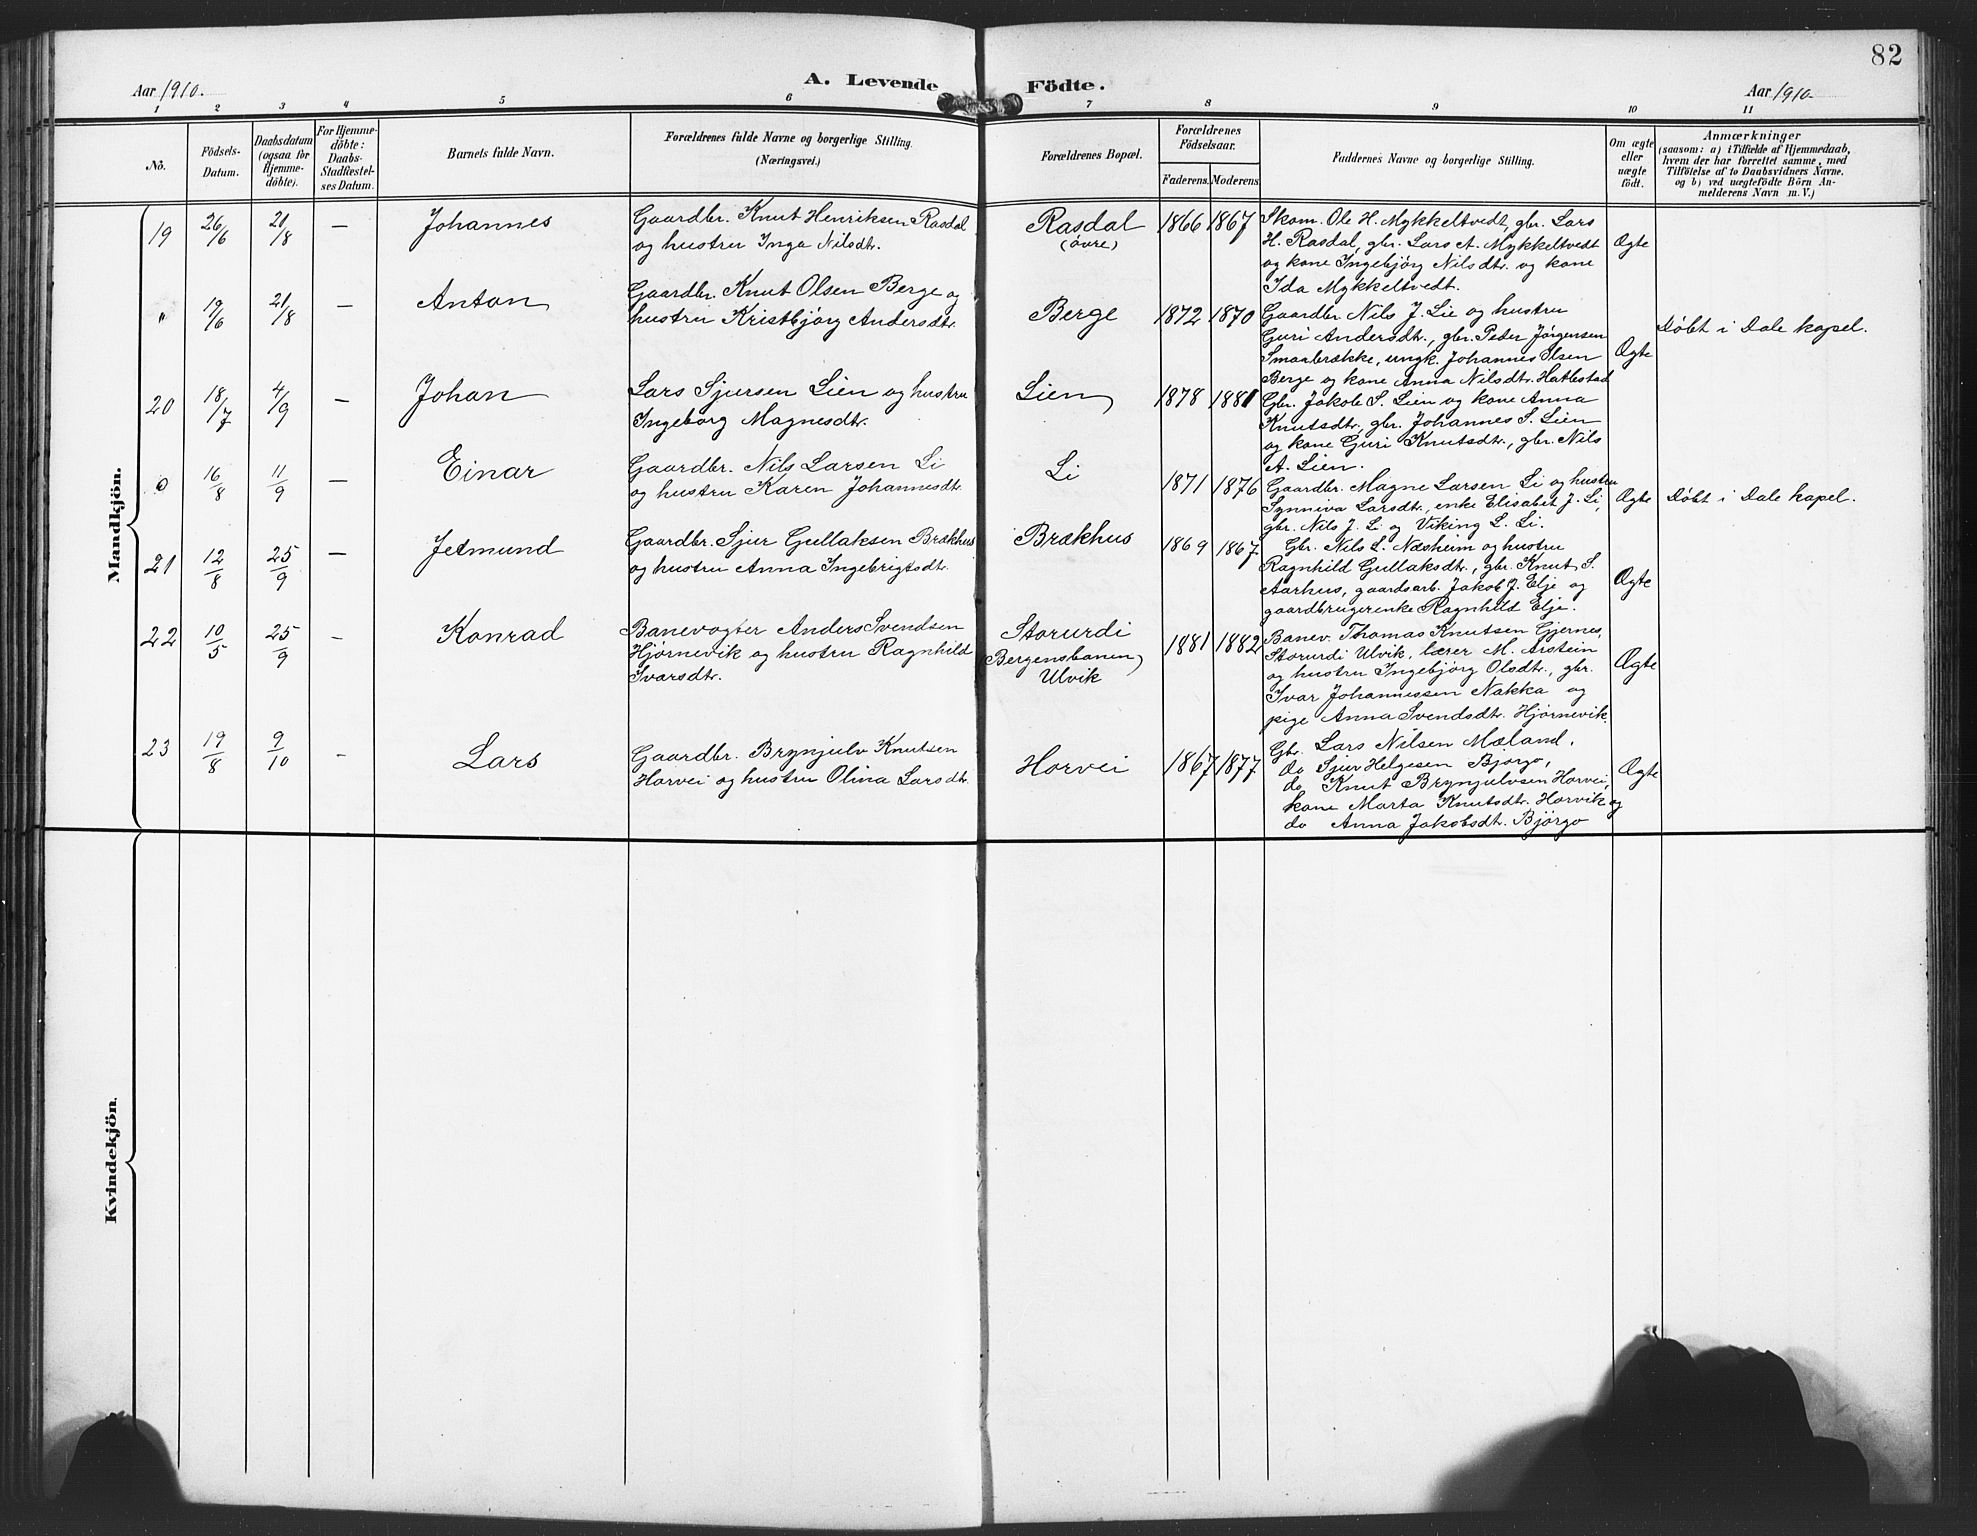 82
Aar 1910.
A. Levende Födte.
Aar 1910.
1 2 3 4 5 6 7 8 9 10 11
Nô.
Födsels-
Datum.
Daabsdatum
(ogsaa for
Hjemme-
döbte).
For Hjemme-
döbte:
Daabs-
Stadfæstel-
ses Datum.
Barnets fulde Navn.
Forældrenes fulde Navne og borgerlige Stilling.
(Næringsvei.)
Forældrenes Bopæl.
Forældrenes
Födselsaar.
Faderens. Moderens.
Faddernes Navne og borgerlige Stilling.
Om ægte
eller
uægte
födt.
Anmærkninger
(saasom: a) i Tilfælde af Hjemmedaab,
hvem der har forrettet samme, med
Tilföielse af to Daabsvidners Navne.
og b) ved uægtefödte Börn An-
melderens Navn m. V.)
Mandkjön.
19 26/6 21/8 — Johannes
Gaardbr. Knut Henriksen Rasdal
og hustru Inga Nilsdtr.
Rasdal
(øvre)
1866 1867
Skom. Ole H. Mykkeltvedt, gbr. Lars
H. Rasdal, gbr. Lars A. Mykkeltvedt
og kone Ingebjörg Nilsdtr. og kone
Ida Mykkeltvedt.
Ægte
" 19/6 21/8 — Anton
Gaardbr. Knut Olsen Berge og
hustru Kristbjörg Andersdtr.
Berge
1872 1870
Gaardbr. Nils J. Lie og hustru
Guri Andersdtr., gbr. Peder Jörgensen
Smaabrække, ungk. Johannes Olsen
Berge og kone Anna Nilsdtr. Hatlestad
Ægte
Døbt i Dale kapel.
20 18/7 4/9 — Johan
Lars Sjursen Lien og hustru
Ingeborg Magnesdtr.
Lien
1878 1881
Gbr. Jakob S. Lien og kone Anna
Knutsdtr, gbr. Johannes S. Lien
og kone Guri Knutsdtr., gbr. Nils
A. Lien.
0 16/8 11/9 — Einar
Gaardbr. Nils Larsen Li
og hustru Karen Johannesdtr.
Li
1871 1876
Gaardbr. Magne Larsen Li og hustru
Synneva Larsdtr., enke Elisabet J. Li,
gbr. Nils J. Li og Viking L. Li.
Ægte
Døbt i Dale kapel.
21 12/8 25/9 — Jetmund
Gaardbr. Sjur Gullaksen Brækhus
og hustru Anna Ingebrigtsdtr.
Brækhus
1869 1867
Gbr. Nils L. Næsheim og hustru
Ragnhild Gullaksdtr., gbr. Knut S.
Aarhus, gaardsarb. Jakob J. Elje og
gaardbrugerenke Ragnhild Elje.
Ægte
22 10/5 25/9 — Konrad
Banevogter Anders Svendsen
Hjørnevik og hustru Ragnhild
Ivarsdtr.
Storurdi
(Bergensbanen)
Ulvik
1881 1882
Banev. Thomas Knutsen Gjernes,
Storurdi Ulvik, lærer M. Arstein
og hustru Ingebjörg Olsdtr., gbr.
Ivar Johannessen Nakka og
pige Anna Svendsdtr. Hjørnevik.
Ægte
23 19/8 9/10 — Lars
Gaardbr. Brynjulv Knutsen
Horvei og hustru Olina Larsdtr.
Horvei
1867 1877
Gbr. Lars Nilsen Mæland,
do Sjur Helgesen Bjørgo,
do Knut Brynjulvsen Horvei,
kone Marta Knutsdtr. Horvik og
do Anna Jakobsdt. Bjørgo
Ægte
Kvindekjön.